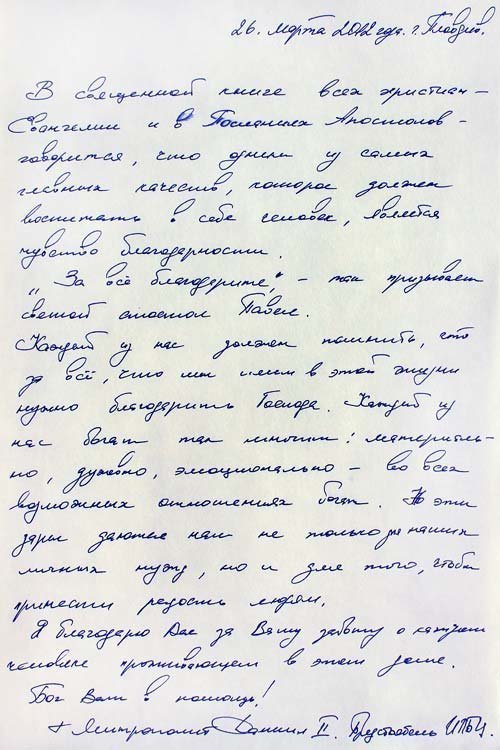 26. марта 2012 года. г. Пловдив.
В священной книге всех христиан –
Евангелии и в Посланиях Апостолов –
говорится, что одним из самых
главных качеств, которое должен
воспитать в себе человек, является
чувство благодарности.
„За всё благодарите", – так призывает
святой апостол Павел.
Каждый из нас должен помнить, что
за всё, что мы имеем в этой жизни
нужно благодарить Господа. Каждый из
нас богат так многим: материаль-
но, духовно, эмоционально – во всех
возможных отношениях богат. Но эти
дары даются нам не только для наших
личных нужд, но и для того, чтобы
принести радость людям.
Я благодарю Вас за Вашу заботу о каждом
человеке проживающем в этом доме.
Бог Вам в помощь!
+ Митрополит Даниил II. Предстоятель ИПБЦ.